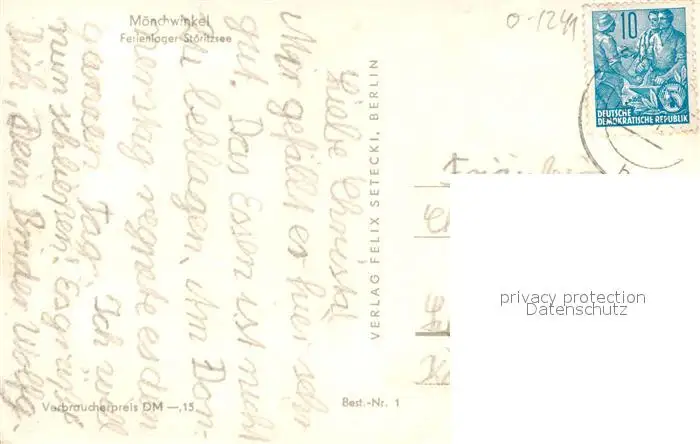 Mönchwinkel
Ferienlager Störitzsee
O-1241
10
DEUTSCHE
DEMOKRATISCHE REPUBLIK
Liebe Christa!
Mir gefällt es hier sehr
gut. Das Essen ist nicht
zu beklagen. Am Don-
nerstag regnete es den
ganzen Tag. Ich will
nun schließen. Es grüßt
Dich, Dein Bruder Wolfg.
VERLAG FELIX SETECKI, BERLIN
privacy protection
Datenschutz
Verbraucherpreis DM —,15
Best.-Nr. 1